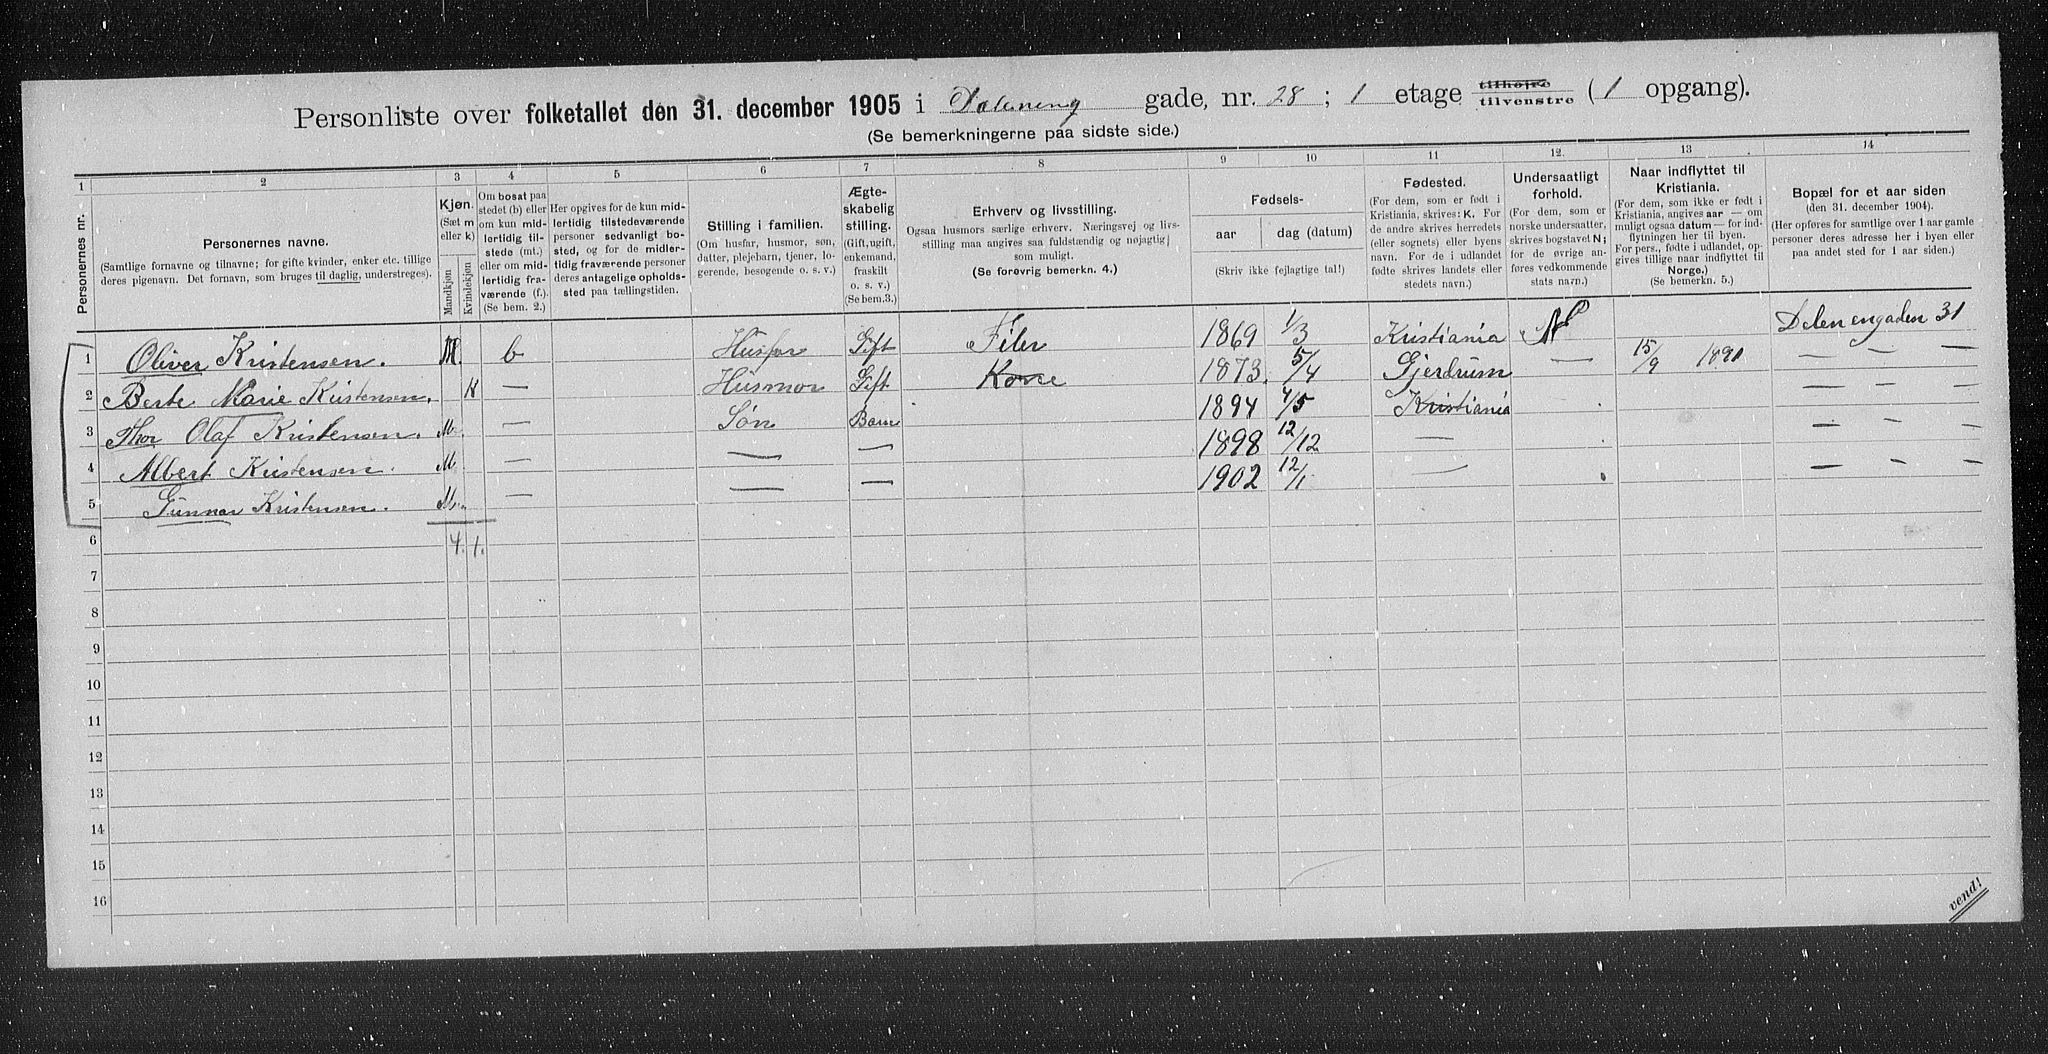 Personliste over folketallet den 31. december 1905 i Dæleneng gade, nr. 28 ; 1 etage tilhøjre tilvenstre (1 opgang).
(Se bemerkningerne paa sidste side.)
1 2 3 4 5 6 7 8 9 10 11 12. 13 14
Personernes nr.
Personernes navne.
(Samtlige fornavne og tilnavne; for gifte kvinder, enker etc. tillige
deres pigenavn. Det fornavn, som bruges til daglig, understreges).
Kjøn.
(Sæt m
eller k)
Mandkjøn
Kvindekjøn
Om bosat paa
stedet (b) eller
om kun mid-
lertidig til-
stede (mt.)
eller om mid-
lertidig fra-
værende (f.)
(Se bem. 2.)
Her opgives for de kun mid-
lertidig tilstedeværende
personer sedvanlig bo-
sted, og for de midler-
tidig fraværende personer
deres antagelige opholds-
sted paa tællingstiden.
Stilling i familien.
(Om husfar, husmor, søn,
datter, plejebarn, tjener, lo-
gerende, besøgende o. s. v.)
Ægte-
skabelig
stilling.
(Gift, ugift,
enkemand,
fraskilt
o. s. v.)
(Se bem.3.)
Erhverv og livsstilling.
Ogsaa husmors særlige erhverv. Næringsvej og livs-
stilling maa angives saa fuldstændig og nøjagtig
som muligt.
(Se forøvrig bemerkn. 4.)
Fødsels-
aar dag (datum)
(Skriv ikke fejlagtige tal!)
Fødested.
(For dem, som er født i
Kristiania, skrives: K. For
de andre skrives herredets
(eller sognets) eller byens
navn. For de i udlandet
fødte skrives landets eller
stedets navn.)
Undersaatligt
forhold.
(For dem, som er
norske undersaatter,
skrives bogstavet N;
for de øvrige an-
føres vedkommende
stats navn.)
Naar indflyttet til
Kristiania.
(For dem, som ikke er født i
Kristiania, angives aar — om
muligt ogsaa datum — for ind-
flytningen her til byen.
For pers., fødte i udlandet, op-
gives tillige naar indflyttet til
Norge.)
(Se bemerkn. 5.)
Bopæl for et aar siden
(den 31. december 1904).
(Her opføres for samtlige over 1 aar gamle
personer deres adresse her i byen eller
paa andet sted for 1 aar siden.)
1 Oliver Kristensen. M. b Husfar Gift Filer 1869 1/3 Kristiania N Delenengaden 31
2 Berte Marie Kristensen. K — Husmor Gift Kone 1873. 5/4 Gjerdrum — 15/9 1890 — — —
3 Thor Olaf Kristensen. M. — Søn Barn 1894 4/5 Kristiania — — —
4 Albert Kristensen. M. — — — 1898 12/12 — — — —
5 Gunnar Kristensen. M. — — — 1902 12/1 — — — —
6 4. 1.
7
8
9
10
11
12
13
14
15
16
vend!